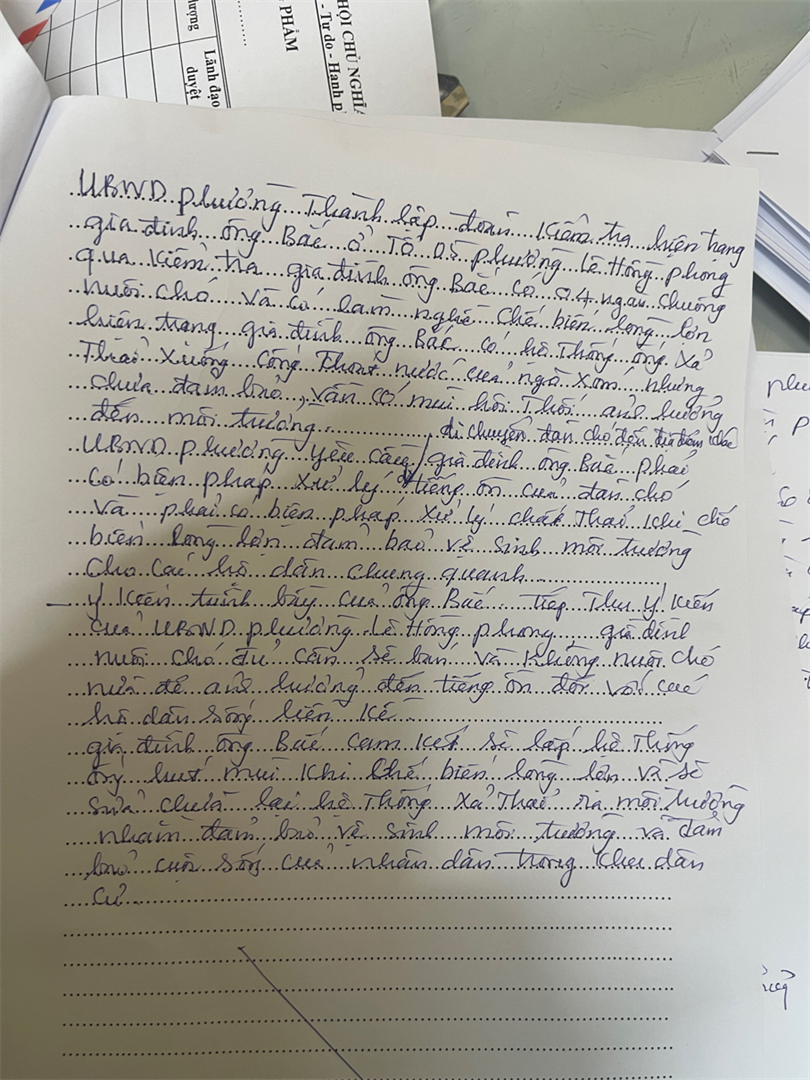 HỘI CHỦ NGHĨA
- Tự do - Hạnh p
PHẨM
lượng
Lãnh đạo
duyệt
UBND phường Thành lập đoàn kiểm tra hiện trạng
gia đình ông Bắc ở Tổ 05 phường Lê Hồng phong
qua kiểm tra gia đình ông Bắc có 04 ngăn chuồng
nuôi chó và có làm nghề chế biến lòng lợn
hiện trạng gia đình ông Bắc có hệ Thống ống xả
Thải xuống cống Thoát nước của ngõ xóm nhưng
chưa đảm bảo, vẫn có mùi hôi Thối ảnh hưởng
đến môi trường
di chuyển đàn chó đến địa điểm khác
UBND phường yêu cầu gia đình ông Bắc phải
có biện pháp xử lý tiếng ồn của đàn chó
và phải có biện pháp xử lý chất Thải khi chế
biến lòng lợn đảm bảo vệ sinh môi trường
cho các hộ dân chung quanh
- ý kiến trình bày của ông Bắc tiếp Thu ý kiến
của UBND phường Lê Hồng phong, gia đình
nuôi chó đủ cân sẽ bán và không nuôi chó
nữa để ảnh hưởng đến tiếng ồn đối với các
hộ dân sống liền kề
gia đình ông Bắc cam kết sẽ lắp hệ Thống
ống hút mùi khi chế biến lòng lợn và sẽ
sửa chữa lại hệ Thống xả Thải ra môi trường
nhằm đảm bảo vệ sinh môi trường và đảm
bảo cuộc sống của nhân dân trong khu dân
cư